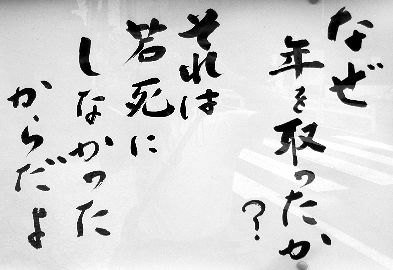 なぜ
年を取ったか
?
それは
若死に
しなかった
からだよ